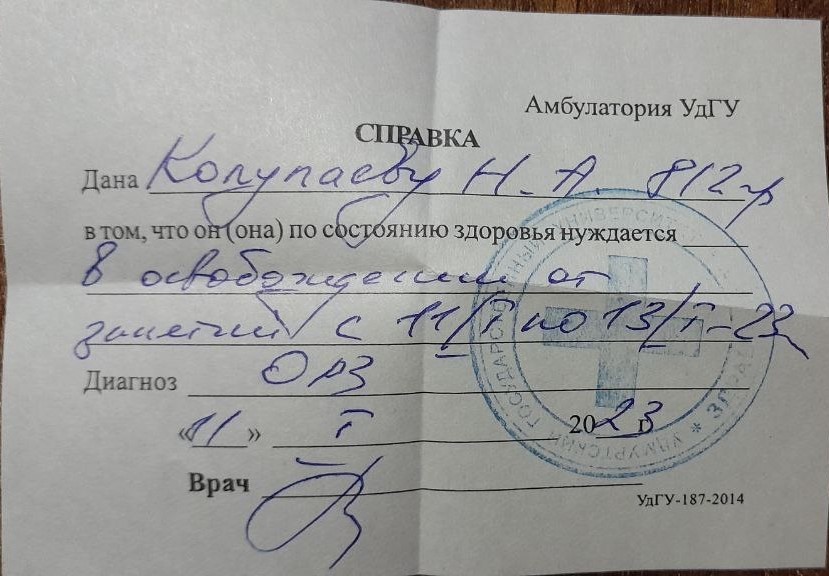 Амбулатория УдГУ
СПРАВКА
Дана Колупаеву Н. А. 812гр
в том, что он (она) по состоянию здоровья нуждается
в освобождении от
занятий с 11/I по 13/I-23
Диагноз ОРЗ
«11» I 2023 г
Врач
УдГУ-187-2014
УДМУРТСКИЙ ГОСУДАРСТВЕННЫЙ УНИВЕРСИТЕТ